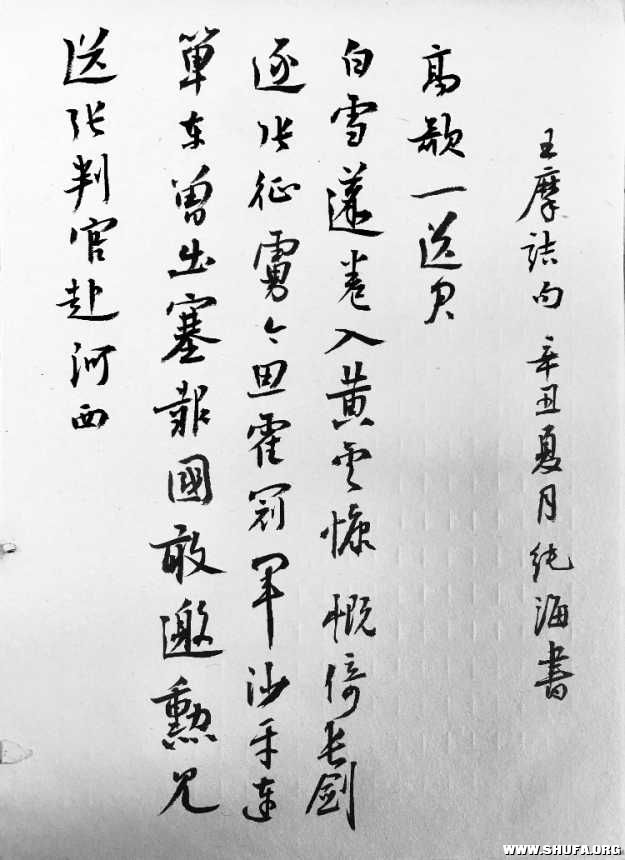 送张判官赴河西
單车曾出塞報國敢邀勳见
逐张征虜今思霍冠军沙平连
白雪蓬卷入黄云慷慨倚长劍
高歌一送君
王摩詰句 辛丑夏月純海書
WWW.SHUFA.ORG